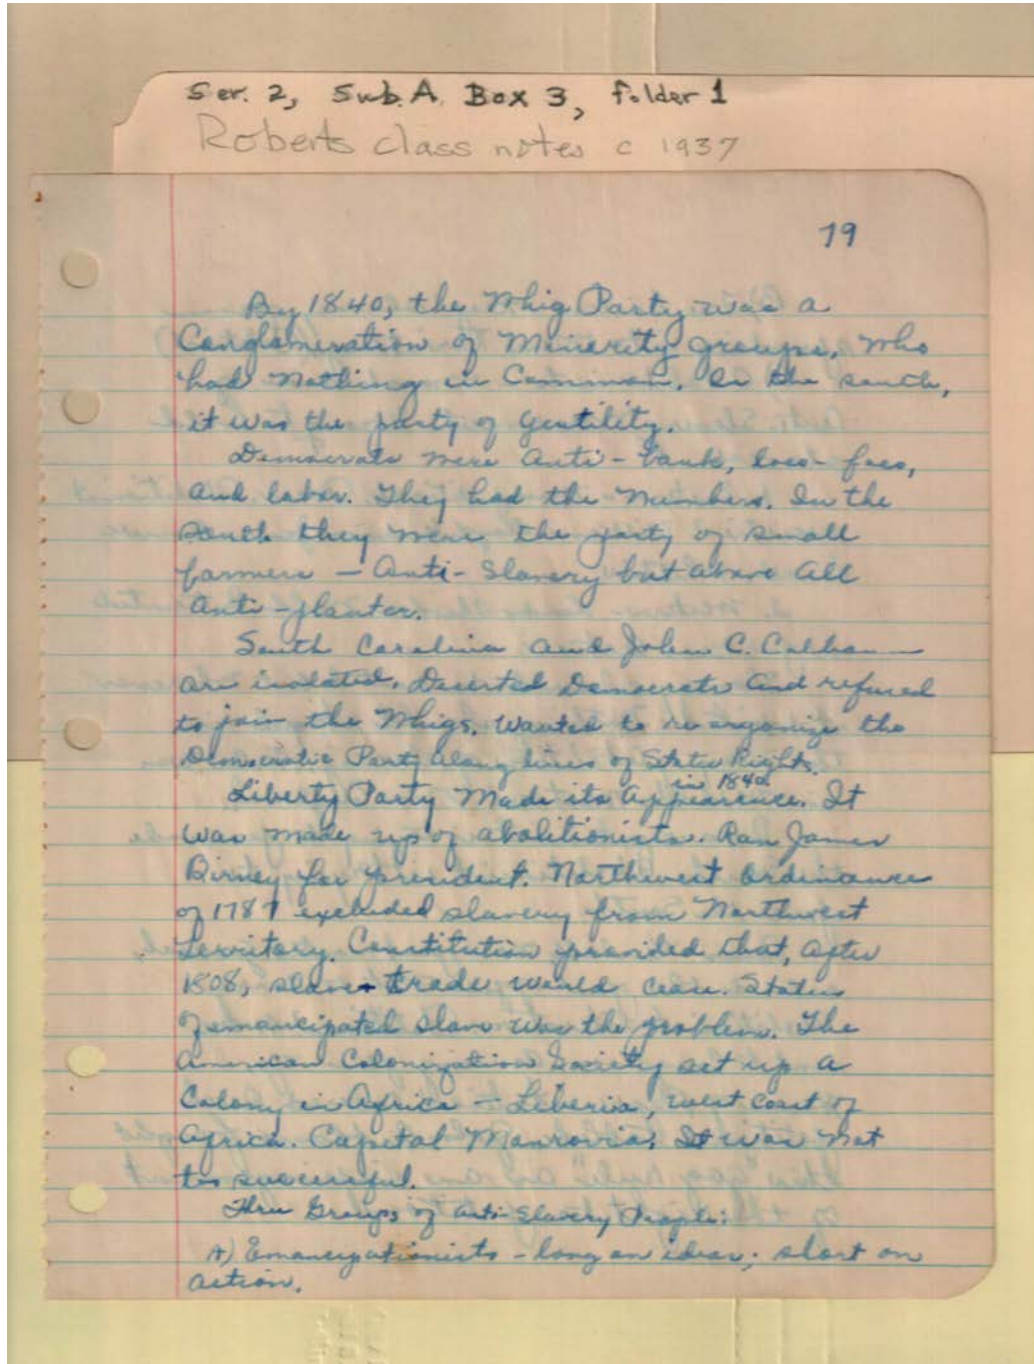 Ser. 2, Sub.A. Box 3, folder 1
Roberts class notes c 1937
79
By 1840, the Whig Party was a
Conglomeration of Minority groups, who
had nothing in Common. In the south,
it was the party of gentility.
Democrats were Anti-bank, loco-foco,
and labor. They had the numbers. In the
south they were the party of small
farmers - Anti-Slavery but above all
anti-planter.
South Carolina and John C. Calhoun
are isolated. Deserted Democrats and refused
to join the Whigs. Wanted to re organize the
Democratic Party along lines of States Rights.
in 1840
Liberty Party Made its Appearance. It
was made up of abolitionists. Ran James
Birney for president. Northwest Ordinance
of 1787 excluded slavery from Northwest
Territory. Constitution provided that, after
1808, slave trade would cease. Status
of emancipated slave was the problem. The
American Colonization Society set up a
Colony in Africa - Liberia, west coast of
Africa. Capital Monrovia. It was not
too successful.
Three Groups of Anti-Slavery People:
A) Emancipationists - long on ideas; short on
action.